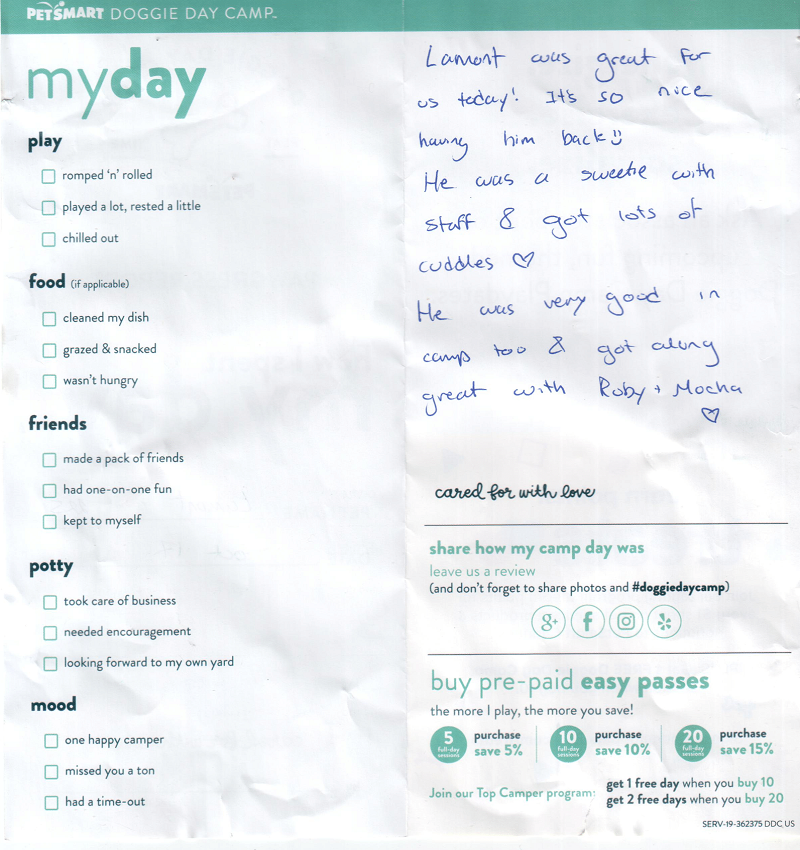 PETSMART DOGGIE DAY CAMP™
myday
play
romped 'n' rolled
played a lot, rested a little
chilled out
food (if applicable)
cleaned my dish
grazed & snacked
wasn't hungry
friends
made a pack of friends
had one-on-one fun
kept to myself
potty
took care of business
needed encouragement
looking forward to my own yard
mood
one happy camper
missed you a ton
had a time-out
Lamont was great for
us today! It's so nice
having him back!
He was a sweetie with
staff & got lots of
cuddles ♡
He was very good in
camp too & got along
great with Roby + Mocha
♡
cared for with love
share how my camp day was
leave us a review
(and don't forget to share photos and #doggiedaycamp)
g+ f
buy pre-paid easy passes
the more I play, the more you save!
5 full-day sessions purchase save 5%
10 full-day sessions purchase save 10%
20 full-day sessions purchase save 15%
Join our Top Camper program: get 1 free day when you buy 10
get 2 free days when you buy 20
SERV-19-362375 DDC US